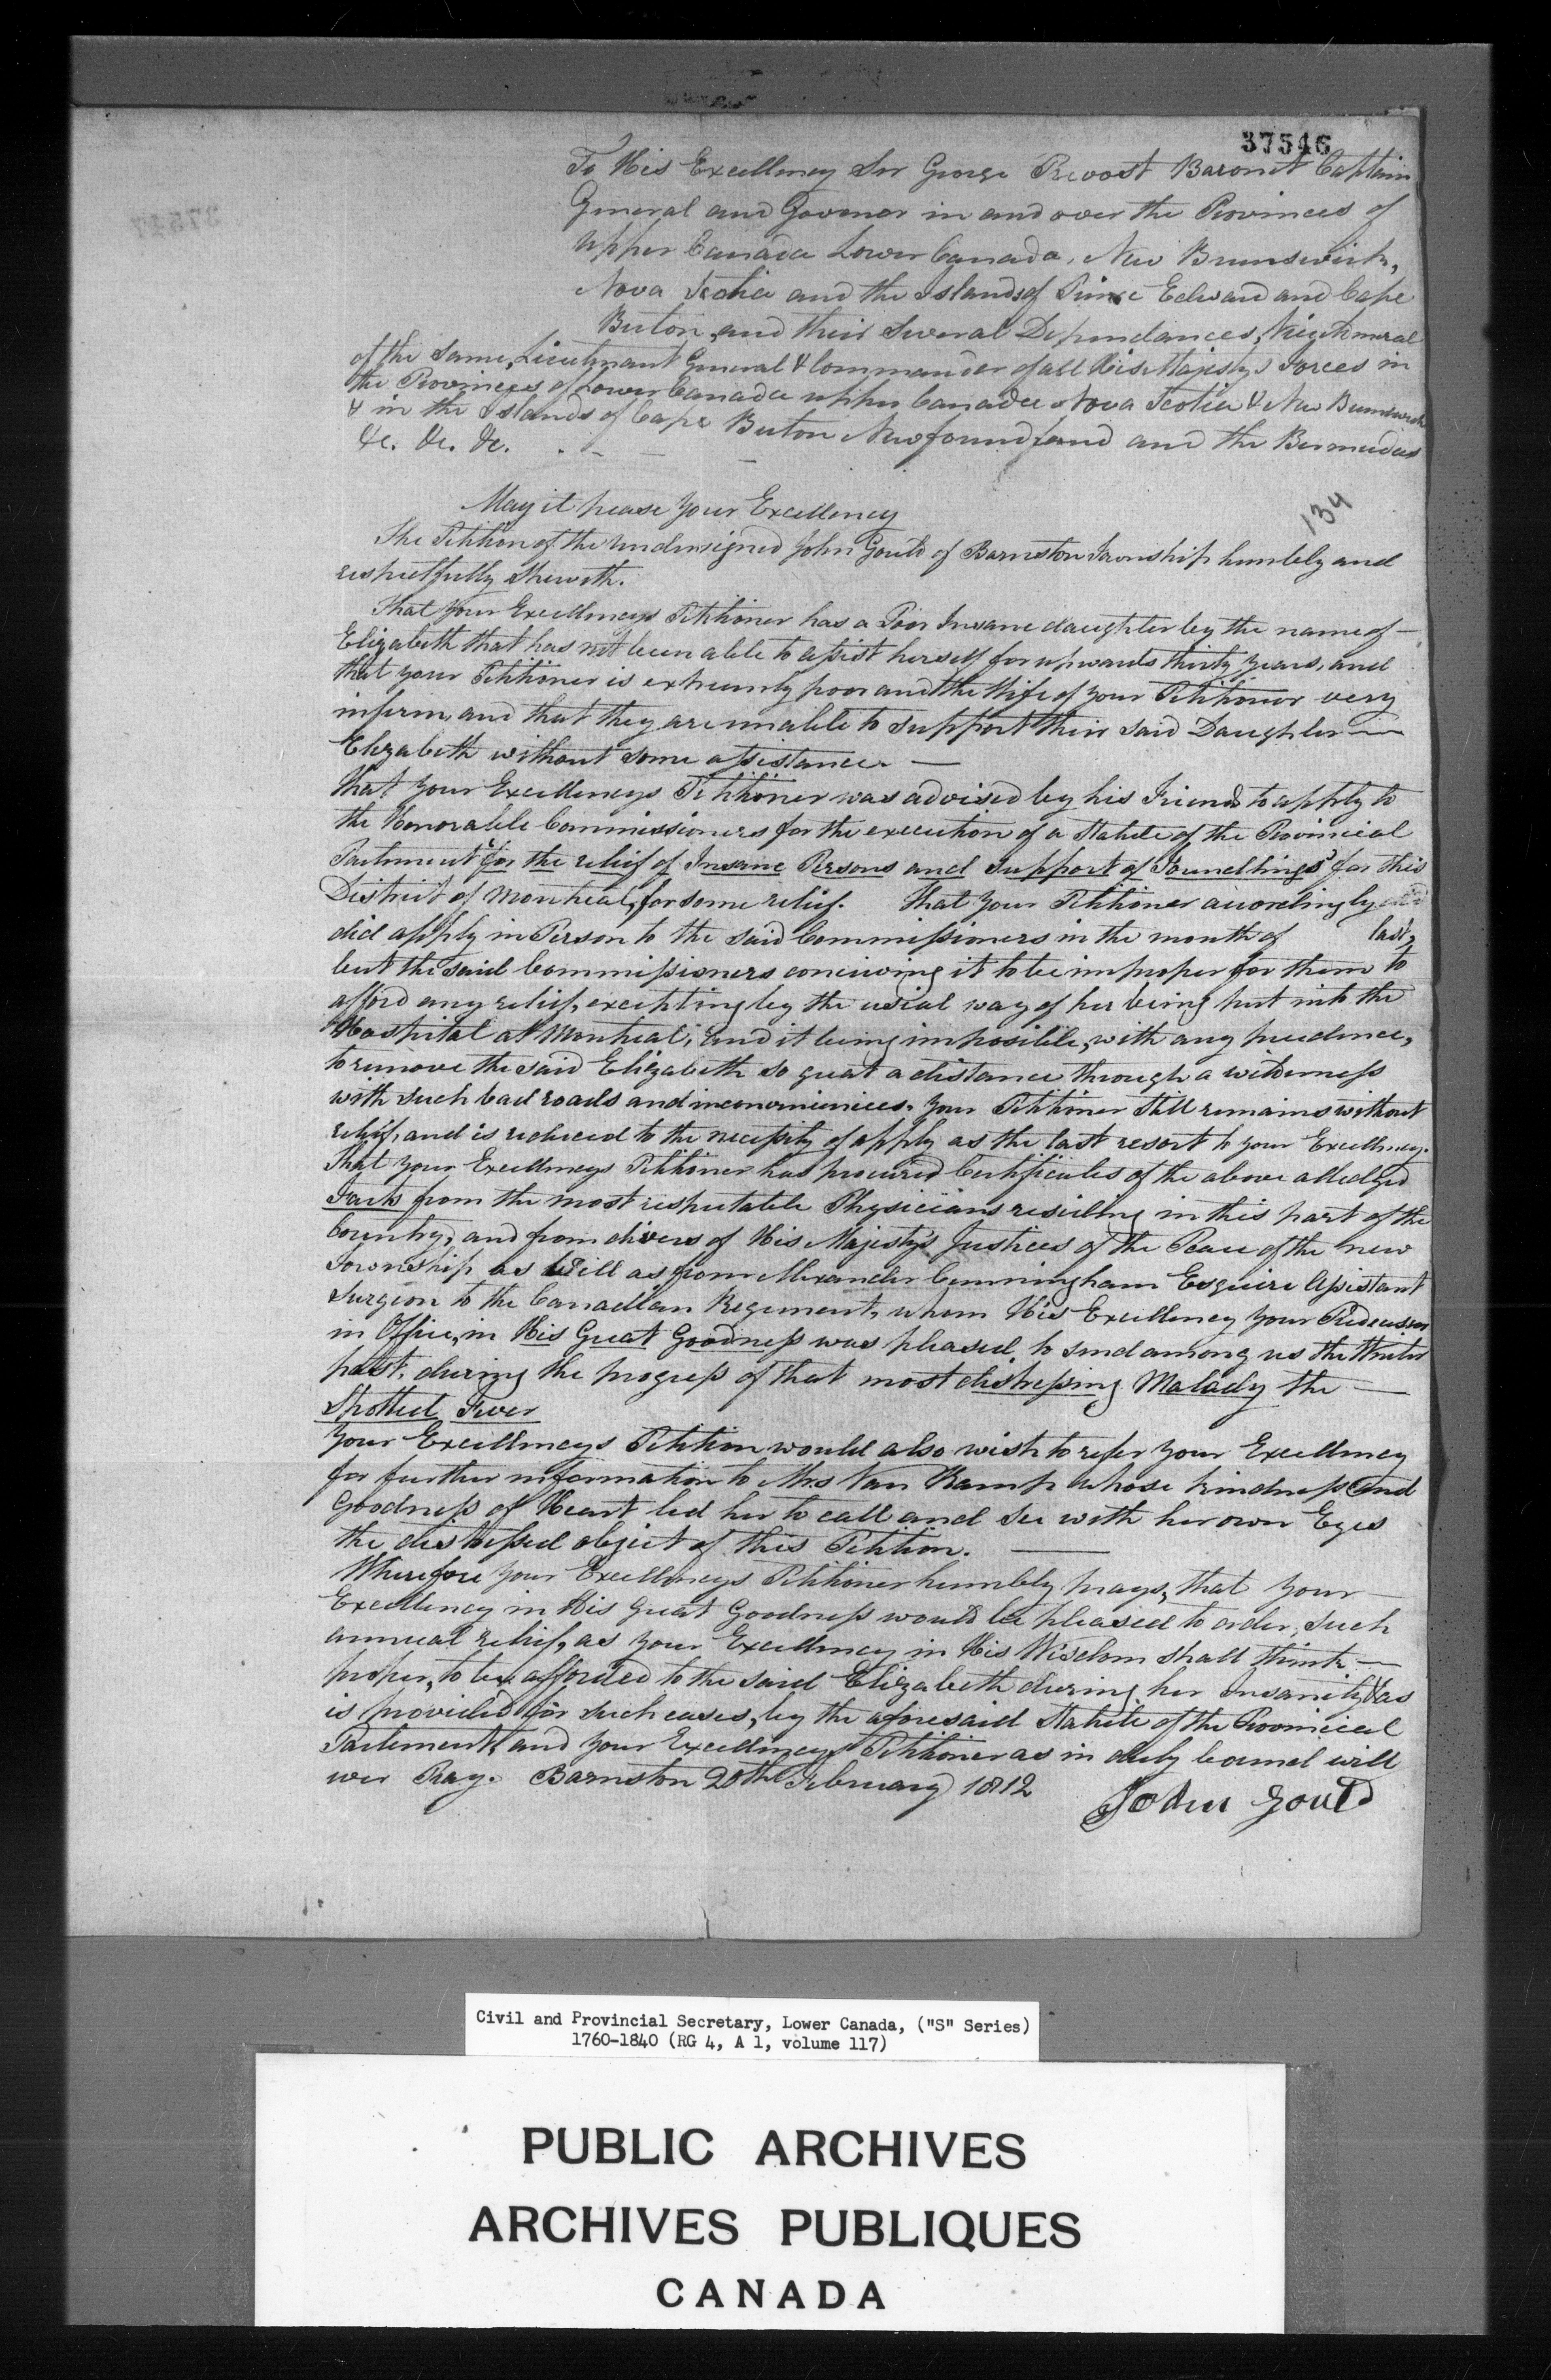 37546
To His Excellency Sir George Prevost Baronet Captain
General and Govenor in and over the Provinces of
Upper Canada Lower Canada, New Brunswick,
Nova Scotia and the Islands of Prince Edward and Cape
Breton, and their several Dependances, Vice Admiral
of the same, Lieutenant General & Commander of all His Majestys Forces in
the Provinces of Lower Canada upper Canada Nova Scotia & New Brunswick
& in the Islands of Cape Breton Newfoundland and the Bermudas
&c. &c. &c.
134
May it please your Excellency
The Petition of the undersigned John Gould of Barnston Township humbly and
respectfully Sheweth.
That your Excellencys Petitioner has a Poor Insane daughter by the name of
Elizabeth that has not been able to assist herself for upwards thirty years, and
that your Petitioner is extreemly poor and the Wife of your Petitioner very
infirm, and that they are unable to support their said Daughter
Elizabeth without some assistance.
That your Excellencys Petitioner was advised by his Friends to apply to
the Honorable Commissioners for the execution of a Statute of the Provincial
Parliment "for the relief of Insane Persons and support of Foundlings" for this
District of Montreal, for some relief. That your Petitioner accordingly
did apply in Person to the said Commissioners in the month of last,
but the said Commissioners conceiving it to be improper for them to
afford any relief, excepting by the usual way of her being put into the
Hospital at Montreal; and it being imposible, with any prudence,
to remove the said Elizabeth so great a distance through a wilderness
with such bad roads and inconveniences. your Petitioner still remains without
relief, and is reduced to the necessity of apply as the last resort to your Excellency.
That your Excellencys Petitioner has procured Certificates of the above alledged
Facts from the most respectable Physicians residing in this part of the
Country, and from divers of His Majesty's Justices of the Peace of the new
Township as Well as from Alexander Cunningham Esquire Assistant
Surgeon to the Canadian Regiment, whom His Excellency your Predecessor
in Office, in His Great Goodness was pleased to send among us the Winter
past, during the progress of that most distressing Malady the
Spotted Fever
Your Excellencys Petition would also wish to refer your Excellency
for further information to Mrs Van Kamp whose kindness and
Goodness of Heart led her to call and see with her own Eyes
the distressed object of this Petition.
Wherefore your Excellencys Petitioner humbly prays, that your
Excellency in His great Goodness would be pleased to order, such
annual relief, as your Excellency in His Wisdom shall think
proper, to be afforded to the said Elizabeth during her Insanity as
is provided for such cases, by the aforesaid Statute of the Provincial
Parlement, and your Excellencys Petitioner as in duty bound will
ever Pray. Barnston 20th February 1812
John Gould
Civil and Provincial Secretary, Lower Canada, ("S" Series)
1760-1840 (RG 4, A 1, volume 117)
PUBLIC ARCHIVES
ARCHIVES PUBLIQUES
CANADA